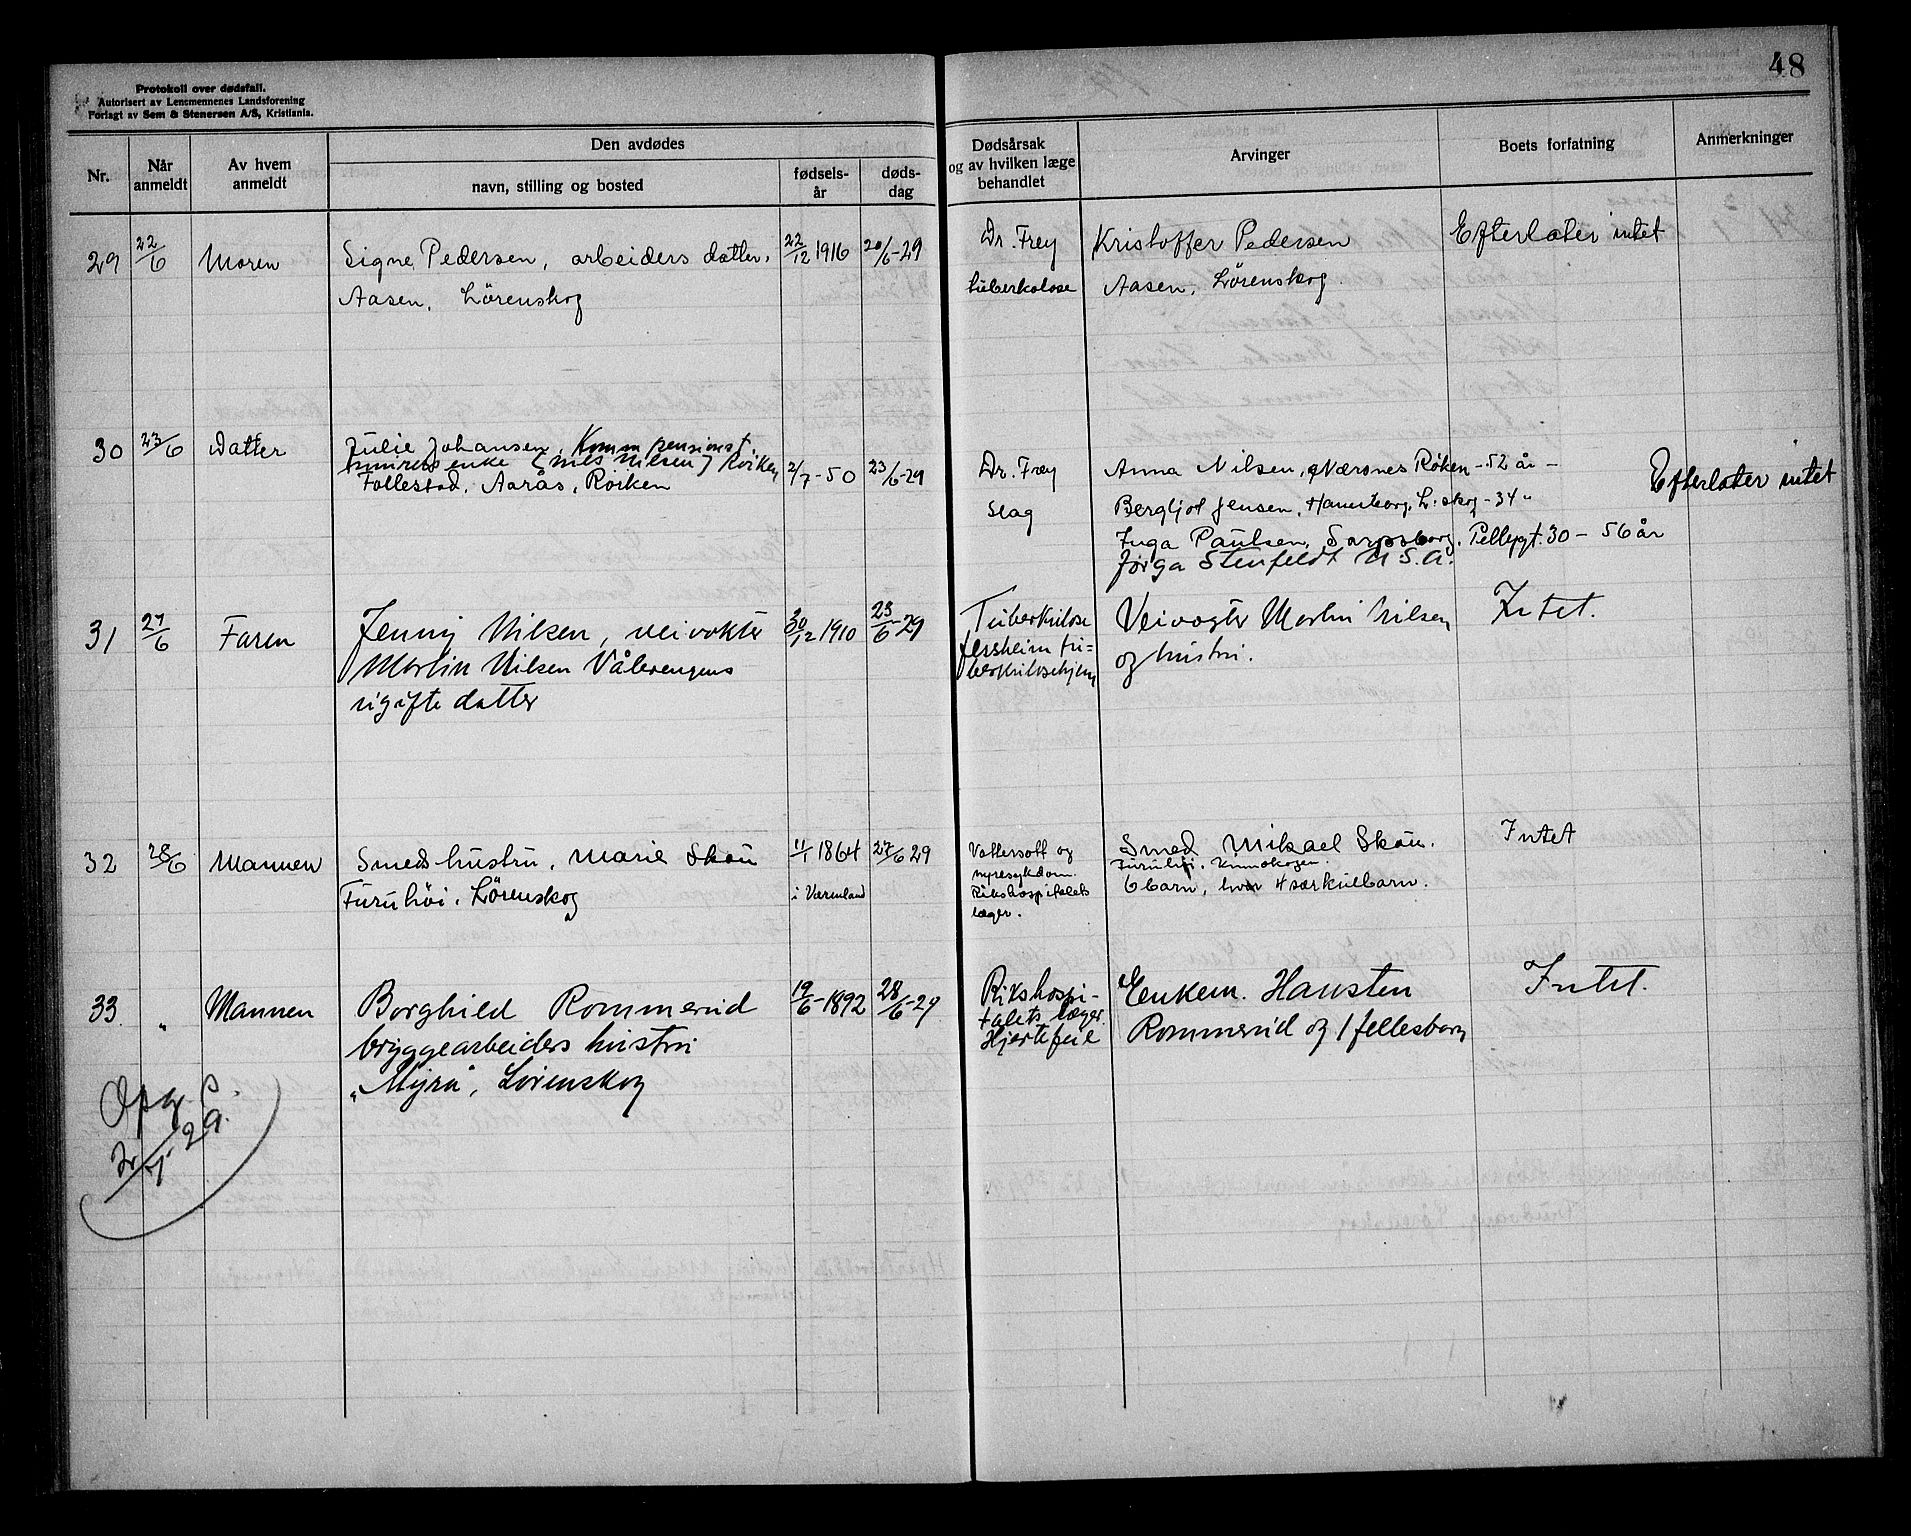 48
Protokoll over dødsfall.
Autorisert av Lensmennenes Landsforening
Forlagt av Sem & Stenersen A/S, Kristiania.
Nr.
Når anmeldt
Av hvem anmeldt
Den avdødes
navn, stilling og bosted
fødselsår
dødsdag
Dødsårsak og av hvilken læge behandlet
Arvinger
Boets forfatning
Anmerkninger
29 22/6 Moren
Signe Pedersen, arbeiders datter,
Aasen, Lörenskog
22/12 1916 20/6-29
Dr. Frey
tuberkolose
Kristoffer Pedersen
Aasen, Lörenskog
Efterlater intet
30 23/6 Datter
Julie Johansen, Komm pensionst.
murers enke (Nils Nilsen) Röiken
Follestad, Aarås, Röiken
2/7-50 23/6-29
Dr. Frey
Slag
Anna Nilsen, Nærsnes Røken - 52 år -
Bergljot Jensen, Hanaborg, L.skog - 34 "
Inga Paulsen, Sarpsborg, Pellygt. 30 - 56 år
Jørga Stenfeldt U.S.A.
Efterlater intet
31 27/6 Faren
Jenny Nilsen, veivokter
Martin Nilsen Vålerengens
ugifte datter
30/12 1910 23/6-29
Tuberkulose
tu-
berkulosehjem
Veivogter Martin Nilsen
og hustru.
Intet.
32 28/6 Mannen
Smedshustru, Marie Skau
Furuhöi, Lörenskog
11/1 1864
i Værmland
27/6 29
Vattersott og
nyresykdom.
Rikshospitalets
læger.
Smed Mikael Skau.
Furuhöi.
6 barn, hvor 4 særkulbarn.
Intet
33. " Mannen
Borghild Rommerud
bryggearbeiders hustru
"Myra", Lørenskog
19/6-1892 28/6-29
Rikshospi-
talets læger.
Hjertefeil
Enkem. Hansten
Rommerud og 1 fellesbarn
Intet.
Opg.
29.